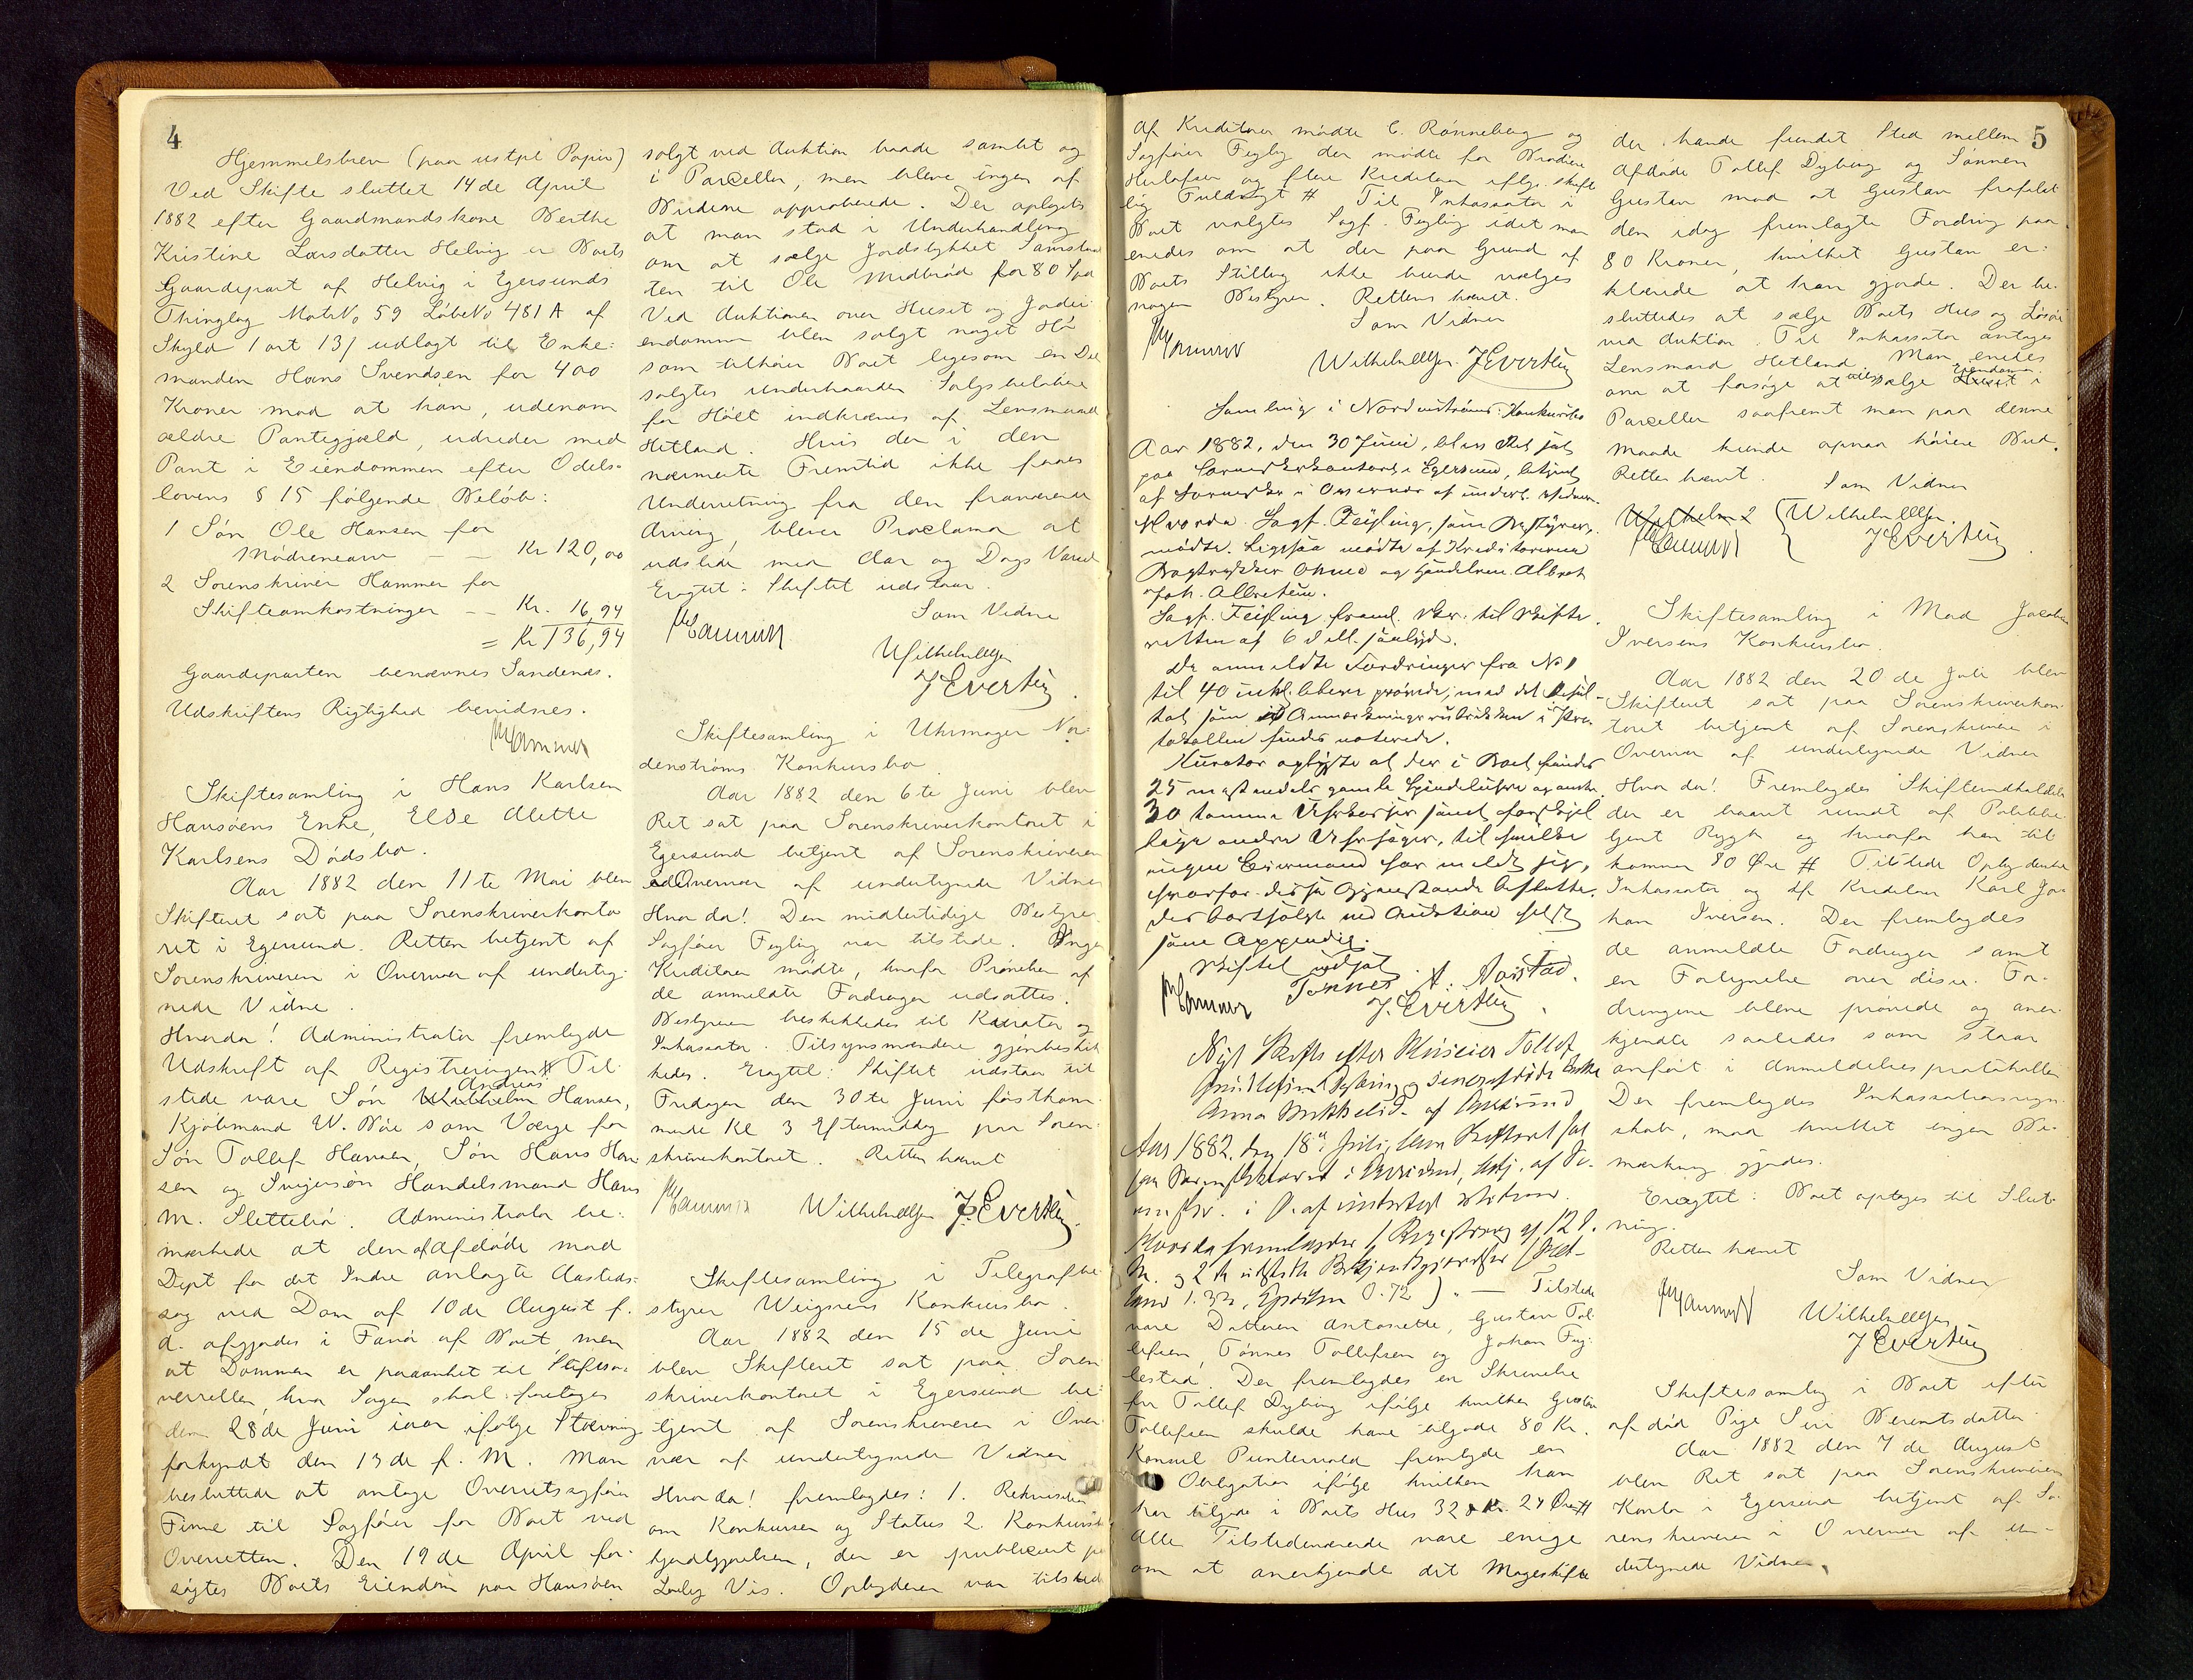 4
Hjemmelsbrev (paa ustpl Papir)
Ved Skifte sluttet 14de April
1882 efter Gaardmandskone Berthe
Kristine Larsdatter Helvig er Boets
Gaardepart af Helvig i Egersunds
Thinglag MatrNo 59 LøbeNo 481 A af
Skyld 1 ort 13 ß udlagt til Enke-
manden Hans Svendsen for 400
Kroner mod at han, udenom
ældre Pantegjæld, udreder med
Pant i Eiendommen efter Odels-
lovens § 15 følgende Beløb:
1 Søn Ole Hansen for
Mødrenearv — — Kr 120,00
2 Sorenskriver Hammer for
Skifteomkostninger — — Kr. 16,94
= Kr 136,94
Gaardeparten benævnes Sandenes.
Udskriftens Rigtighed bevidnes.
Hammer
Skiftesamling i Hans Karlsen
Hansøens Enke, Else Mette
Karlsens Dødsbo.
Aar 1882 den 11te Mai blev
Skifteret sat paa Sorenskriverkonto
ret i Egersund. Retten betjent af
Sorenskriveren i Overvær af underteg-
nede Vidne.
Hvorda! Administrator fremlagde
Udskrift af Registreringen # Til
stede vare Søn Wilhelm Andreas Hansen,
Kjøbmand W. Bøe som Værge for
Søn Tollef Hansen, Søn Hans Han-
sen og Svigersøn Handelsmand Hans
M. Slettebø. Administrator be-
mærkede at den af Afdøde mod
Dept for det Indre anlagte Aasteds-
sag ved Dom af 10de August f.
A. afgjordes i Favør af Boet, men
at Dommen er paaanket til Stiftso-
verretten, hvor Sagen skal foretages
den 28de Juni iaar ifølge Stævning
forkyndt den 13de f. M. Man
besluttede at antage Overretssagfører
Finne til Sagfører for Boet ved
Overretten. Den 19de April for-
søgtes Boets Eiendom paa Hansøen
solgt ved Auktion baade samlet og
i Parceller, men bleve ingen af
Budene approberede. Der oplystes
at man stod i Underhandling
om at sælge Jordstykket Samstad
ten til Ole Midbrød for 80 Spd
Ved Auktionen over Huset og Jordei-
endommen blev solgt noget Hø
som tilhører Boet ligesom en Del
solgtes underhaanden Salgsbeløbene
for Høet indkræves af Lensmand
Hetland. Hvis der i den
nærmeste Fremtid ikke faaes
Underretning fra den fraværende
Arving, bliver Proclama at
udstede med Aar og Dags Varsel
Eragtet: Skiftet udstaar.
Som Vidne
Hammer
Wilhelm Olsen
J Evertsen.
Skiftesamling i Uhrmager Nor-
denstrøms Konkursbo
Aar 1882 den 6te Juni blev
Ret sat paa Sorenskriverkontoret i
Egersund betjent af Sorenskriveren
i Overvær af undertegnede Vidner
Hvorda! Den midlertidige Bestyrer
Sagfører Feyling var tilstede. Ingen
Kreditorer mødte, hvorfor Prøvelsen af
de anmeldte Fordringer udsattes.
Bestyreren beskikkedes til Kurator og
Inkassator. Tilsynsmændene gjenbeskik
kedes. Eragtet: Skiftet udstaar til
Fredagen den 30te Juni førstkom-
mende Kl 3 Eftermiddag paa Soren-
skriverkontoret. Retten hævet
Hammer Wilhelm Olsen J. Evertsen.
Skiftesamling i Telegrafbe
styrer Weigners Konkursbo.
Aar 1882 den 15de Juni
blev Skifteret sat paa Soren
skriverkontoret i Egersund be-
tjent af Sorenskriveren i Over-
vær af undertegnede Vidner
Hvorda! fremlagdes: 1. Rekvisition
om Konkursen og Status 2. Konkurs
kjendtgjørelsen, der er publiceret paa
Lovlig Vis. Opbyderen var tilstede
5
Af Kreditorer mødte C. Rønneberg og
Sagfører Feyling der mødte for Brødrene
Herlofsen og flere Kreditorer ifølge skrift
lig Fuldmagt # Til Inkassator i
Boet valgtes Sagf. Feyling idet man
enedes om at der paa Grund af
Boets Stilling ikke burde vælges
nogen Bestyrer. Retten hævet.
Som Vidner
Hammer
Wilhelm Olsen. J Evertsen
Samling i Nordenstrøms Konkursbo
Aar 1882, den 30 Juni, blev Ret sat
paa Sorenskrkontoret i Egersund, betjent
af Sorenskr. i Overvær af undert. Vidner.
Hvorda Sagf. Feyling, som Bestyrer,
mødte. Ligesaa mødte af Kreditorerne
Bogtrykker Ohme og Handelsm. Albret
Joh. Albretsen.
Sagf. Feyling freml. Skr. til Skifte
retten af 6 d M. saalyd.
De anmeldte Fordringer fra No 1
til 40 inkl. bleve prøvede, med det Resul-
tat som i Anmærkningsrubrikken i Pro-
tokollen findes noterede.
Kurator oplyste at der i Boet findes
25 mestendels gamle Spindeluhre og omtr.
30 tomme Uhrkasser samt forskjel
lige andre Uhrsager, til hvilke
ingen Eiermand har meldt sig,
hvorfor disse Gjenstande besluttedes
bortsolgt ved Auktion helst
som Appendix.
Skiftet udsat.
Hammer Tønnes A. Aarstad.
J. Evertsen.
Nyt Skifte efter Huseier Tollef
Gundersen Dybing og senere afdøde Enke
Anna Mikkelsd. af Egersund
Aar 1882, den 18de Juli, blev Skifteret sat
paa Sorenskrkontoret i Egersund, betj. af So-
renskr. i O. af undertegn. Vidner.
Hvorda fremlagdes 1 Registrering af 12 d.
M. og 2
Tilstede
vare Datteren Antonette, Gustav Tol-
lefsen, Tønnes Tollefsen og Johan Fug-
lestad. Der fremlagdes en Skrivelse
fra Tollef Dybing ifølge hvilken Gustav
Tollefsen skulde have tilgode 80 Kr.
Konsul Puntervold fremlagde en
Obligation ifølge hvilken han
har tilgode i Boets Hus 328 Kr. 24 Øre #
Alle Tilstedeværende vare enige
om at anerkjende det Mageskifte
der havde fundet Sted mellem
Afdøde Tollef Dybing og Sønnen
Gustav mod at Gustav frafaldt
den idag fremlagte Fordring paa
80 Kroner, hvilket Gustav er-
klærede at han gjorde. Der be-
sluttedes at sælge Boets Hus og Løsøre
ved Auktion. Til Inkassator antages
Lensmand Hetland. Man enedes
om at forsøge at sælge Huset Eiendommen i
Parceller saafremt man paa denne
Maade kunde opnaa høiere Bud.
Retten hævet. Som Vidner
Wilhelm
Hammer { Wilhelm Olsen.
J Evertsen.
Skiftesamling i Mad Jacob
Iversens Konkursbo.
Aar 1882 den 20de Juli blev
Skifteret sat paa Sorenskriverkon-
toret betjent af Sorenskriveren i
Overvær af undertegnede Vidner
Hvorda! Fremlagdes Skifteindkaldelsen
der er baaret rundt af Politibe-
tjent Rygh og hvorfor han til
kommer 80 Øre # Tilstede Opbyderen
Inkassator og af Kreditorer Karl Jo-
han Iversen. Der fremlagdes
de anmeldte Fordringer samt
en Fortegnelse over disse. For-
dringene bleve prøvede og aner-
kjendte saaledes som staar
anført i Anmeldelsesprotokollen
Der fremlagdes Inkassationsregn-
skab, mod hvilket ingen Be-
mærkning gjordes.
Eragtet: Boet optages til Slut-
ning.
Retten hævet
Som Vidner
Hammer Wilhelm Olsen
J Evertsen
Skiftesamling i Boet efter
afdød Pige Siri Berentsdatter
Aar 1882 den 7de August
blev Ret sat paa Sorenskriverens
Kontor i Egersund betjent af So-
renskriveren i Overvær af un-
dertegnede Vidner.